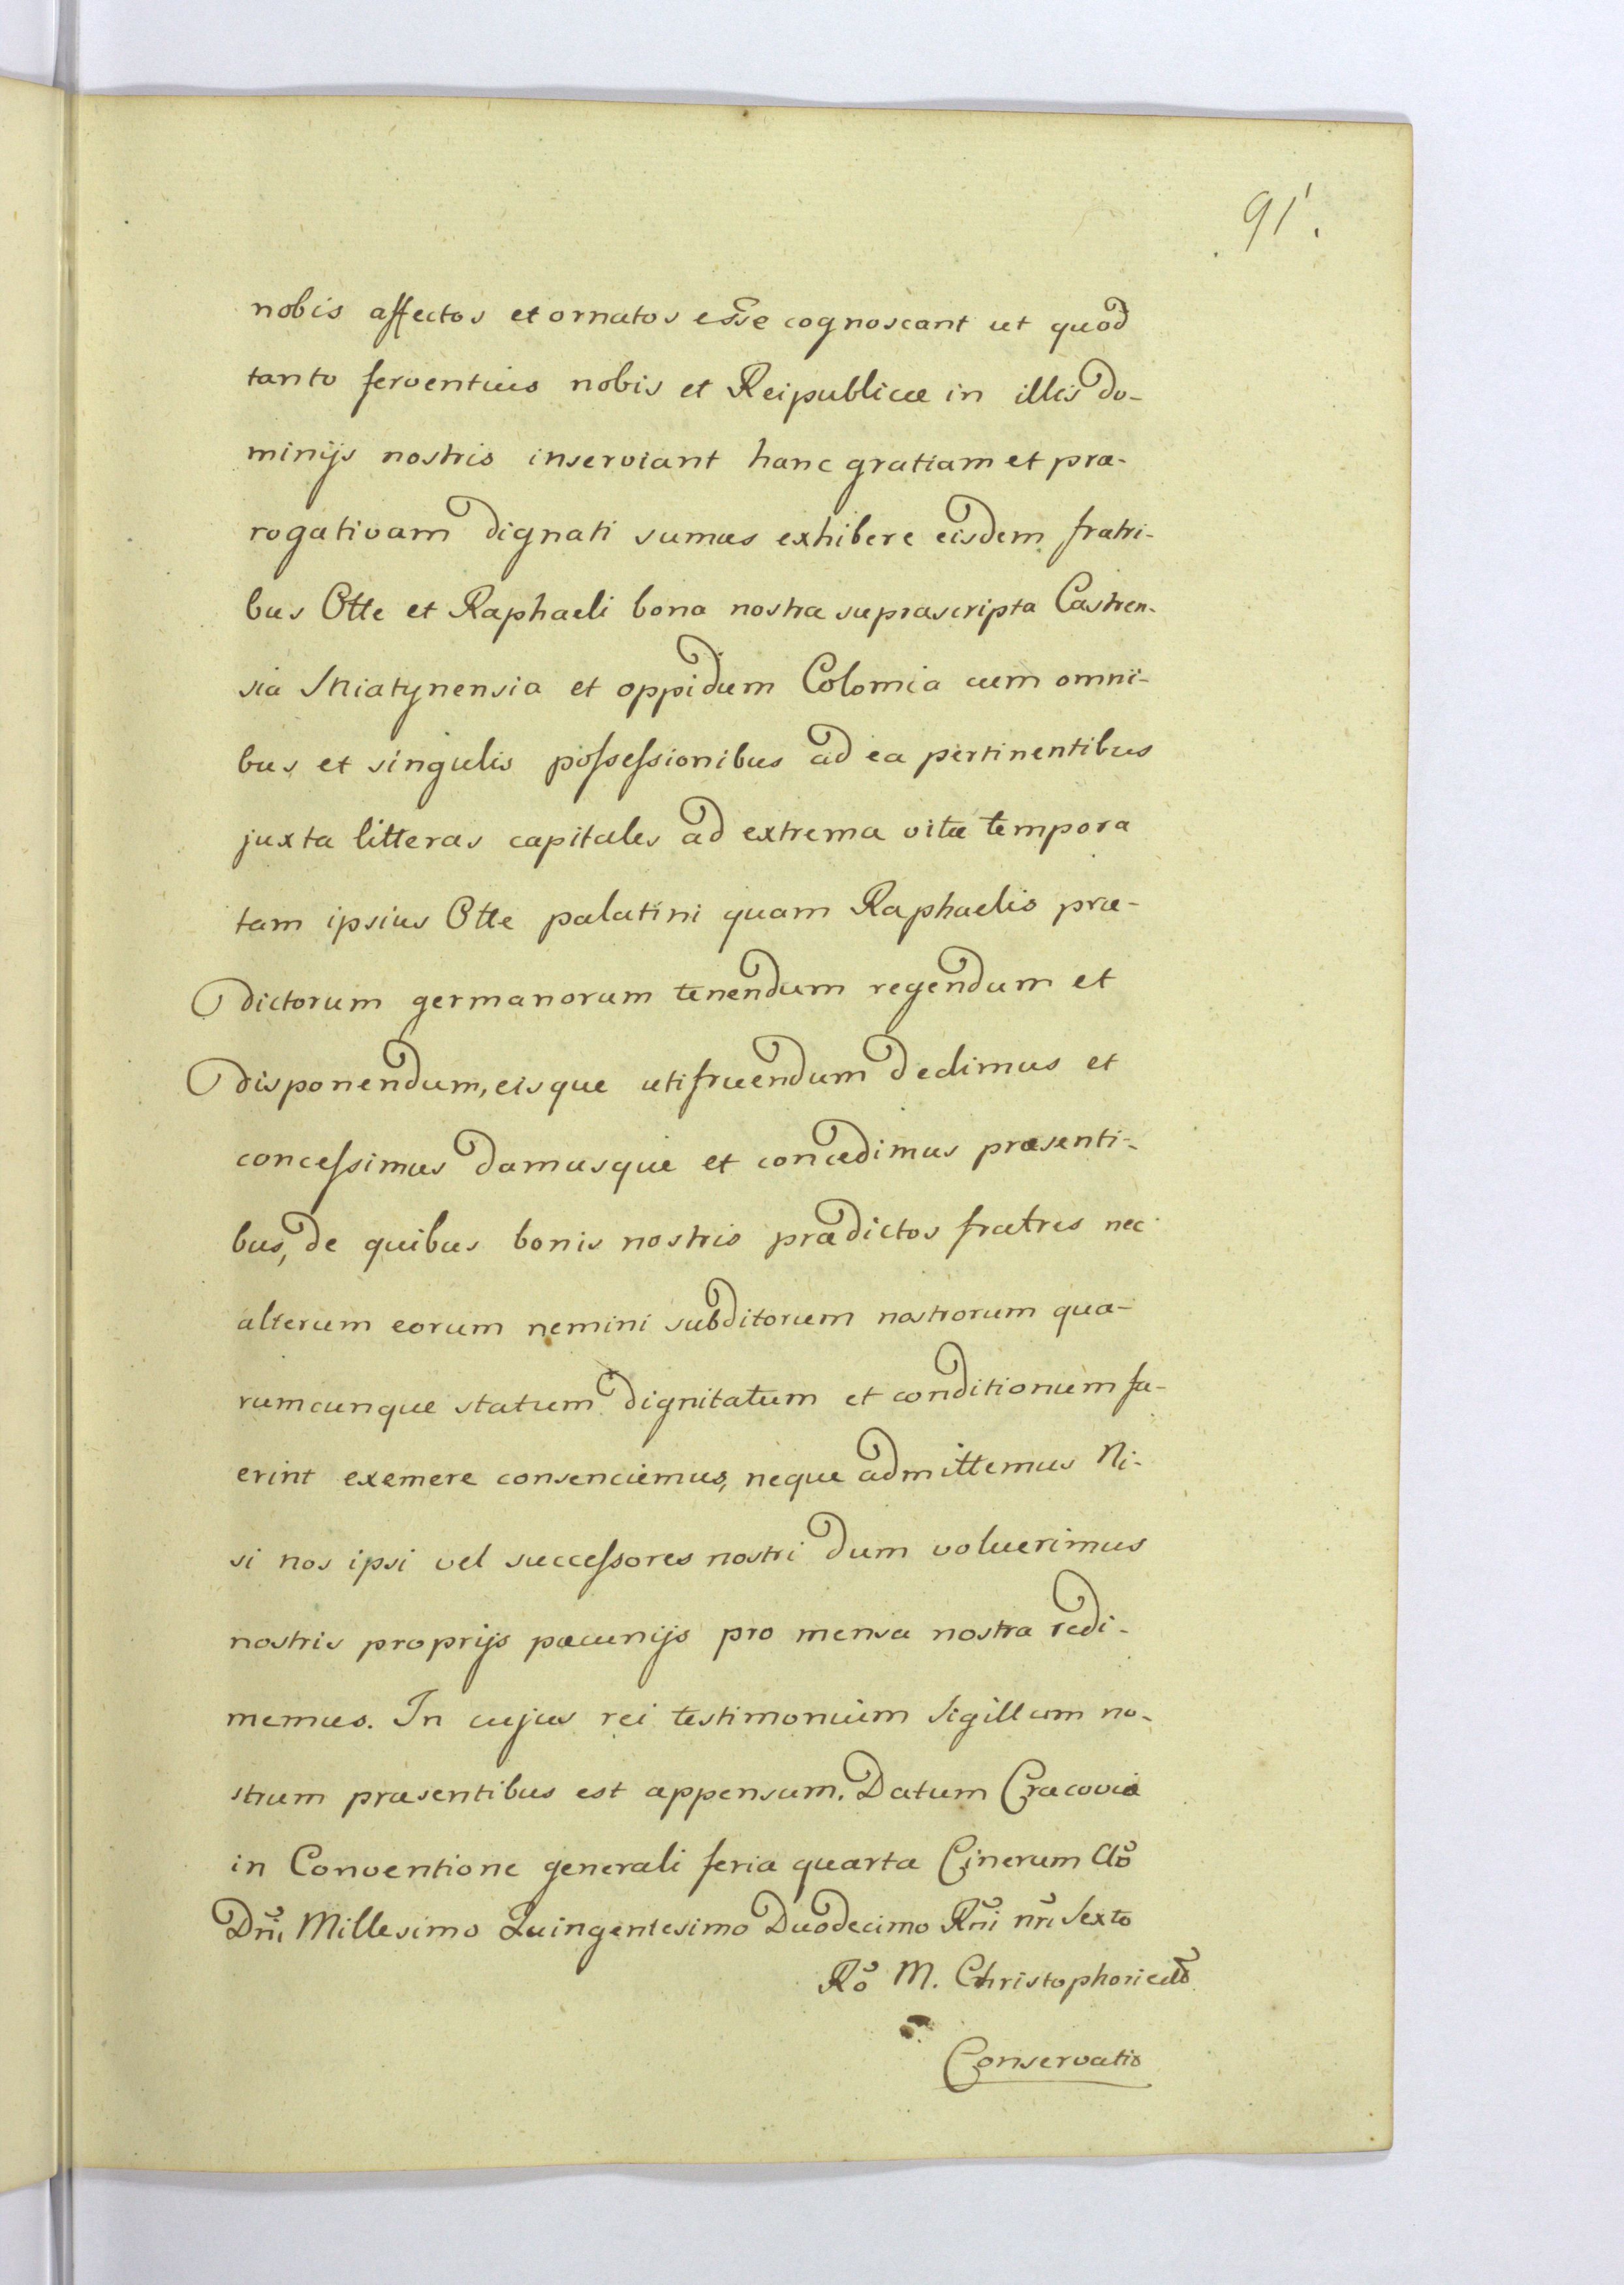 91.
nobis affectos et ornatos esse cognoscant ut quod
tanto ferventius nobis et Reipublicæ in illis do-
minijs nostris inserviant hanc gratiam et præ-
rogativam dignati sumus exhibere eisdem fratri-
bus Otte et Raphaeli bona nostra suprascripta Castren-
sia Sniatynensia et oppidum Colomia cum omni-
bus et singulis possessionibus ad ea pertinentibus
juxta litteras capitales ad extrema vitæ tempora
tam ipsius Otte palatini quam Raphaelis præ-
dictorum germanorum tenendum regendum et
disponendum, eisque utifruendum dedimus et
concessimus damusque et concedimus præsenti-
bus, de quibus bonis nostris prædictos fratres nec
alterum eorum nemini subditorum nostrorum qua-
rumcunque statum dignitatum et conditionum fu-
erint exemere consenciemus, neque admittemus Ni-
si nos ipsi vel successores nostri dum voluerimus
nostris proprijs pæcunijs pro mensa nostra redi-
memus. In cujus rei testimonium Sigillum no-
strum præsentibus est appensum. Datum Cracoviæ
in Conventione generali feria quarta Cinerum Ao
Dni Millesimo Quingentesimo Duodecimo Rni nri Sexto
Ro M. Christophori
Conservatio